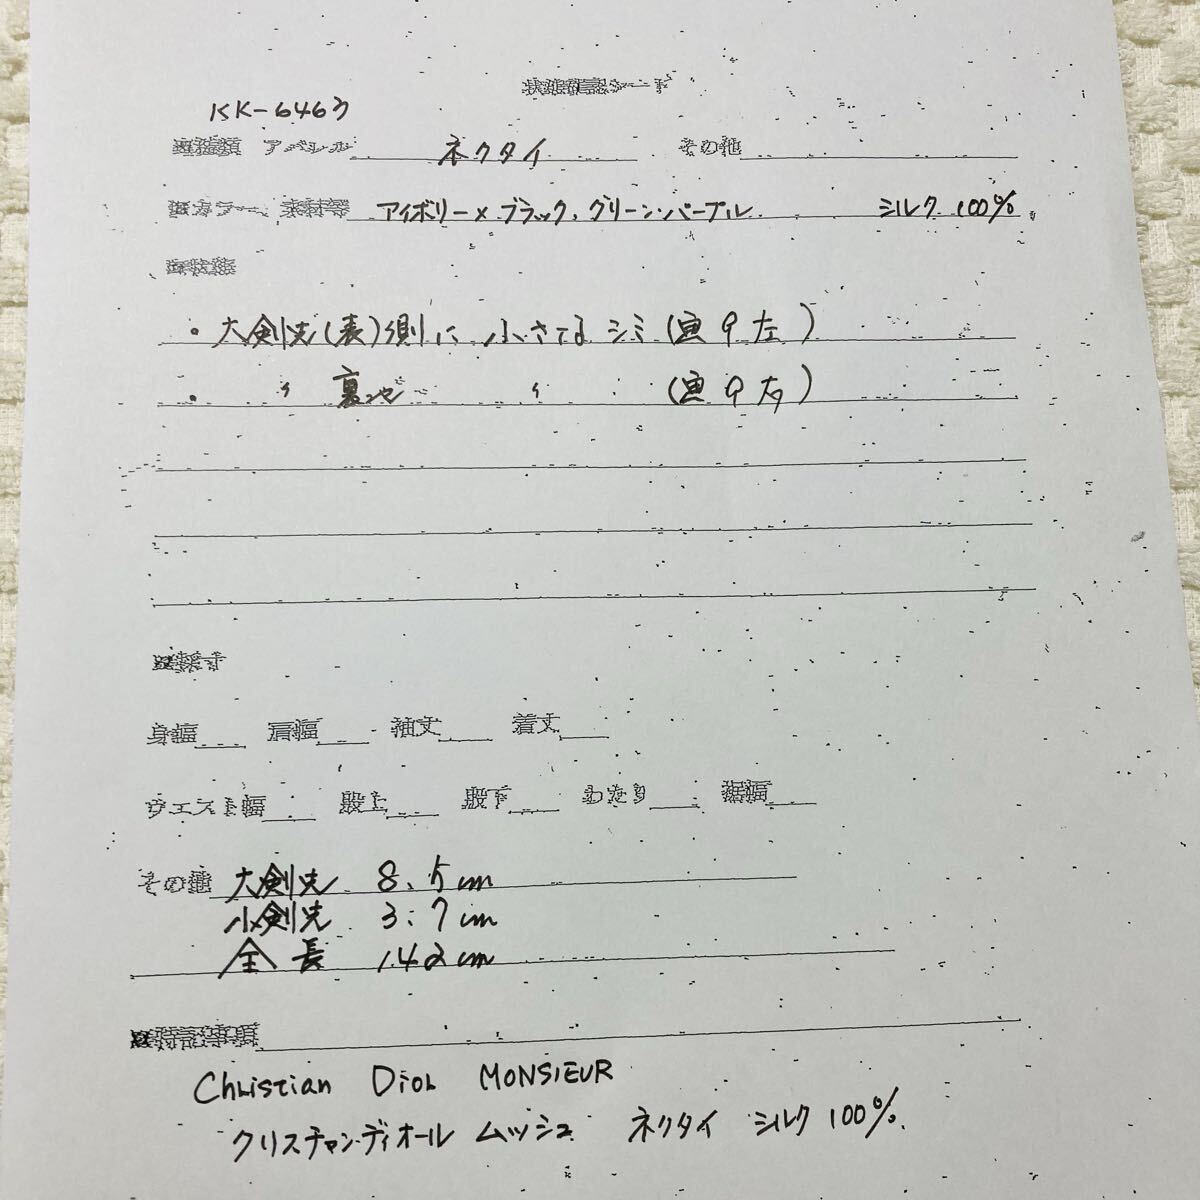 状態確認シート
KK-6463
■種類 アパレル ネクタイ その他
■カラー、素材等 アイボリー×ブラック、グリーン・パープル シルク 100%
■状態
・大剣先(表)側に 小さな シミ(画9左)
・〃 裏 〃 (画9右)
■採寸
身幅 肩幅 袖丈 着丈
ウエスト幅 股上 股下 わたり 裾幅
その他 大剣先 8.5cm
小剣先 3.7cm
全長 142cm
■特記事項
Christian Dior MONSIEUR
クリスチャンディオール ムッシュ ネクタイ シルク 100%.